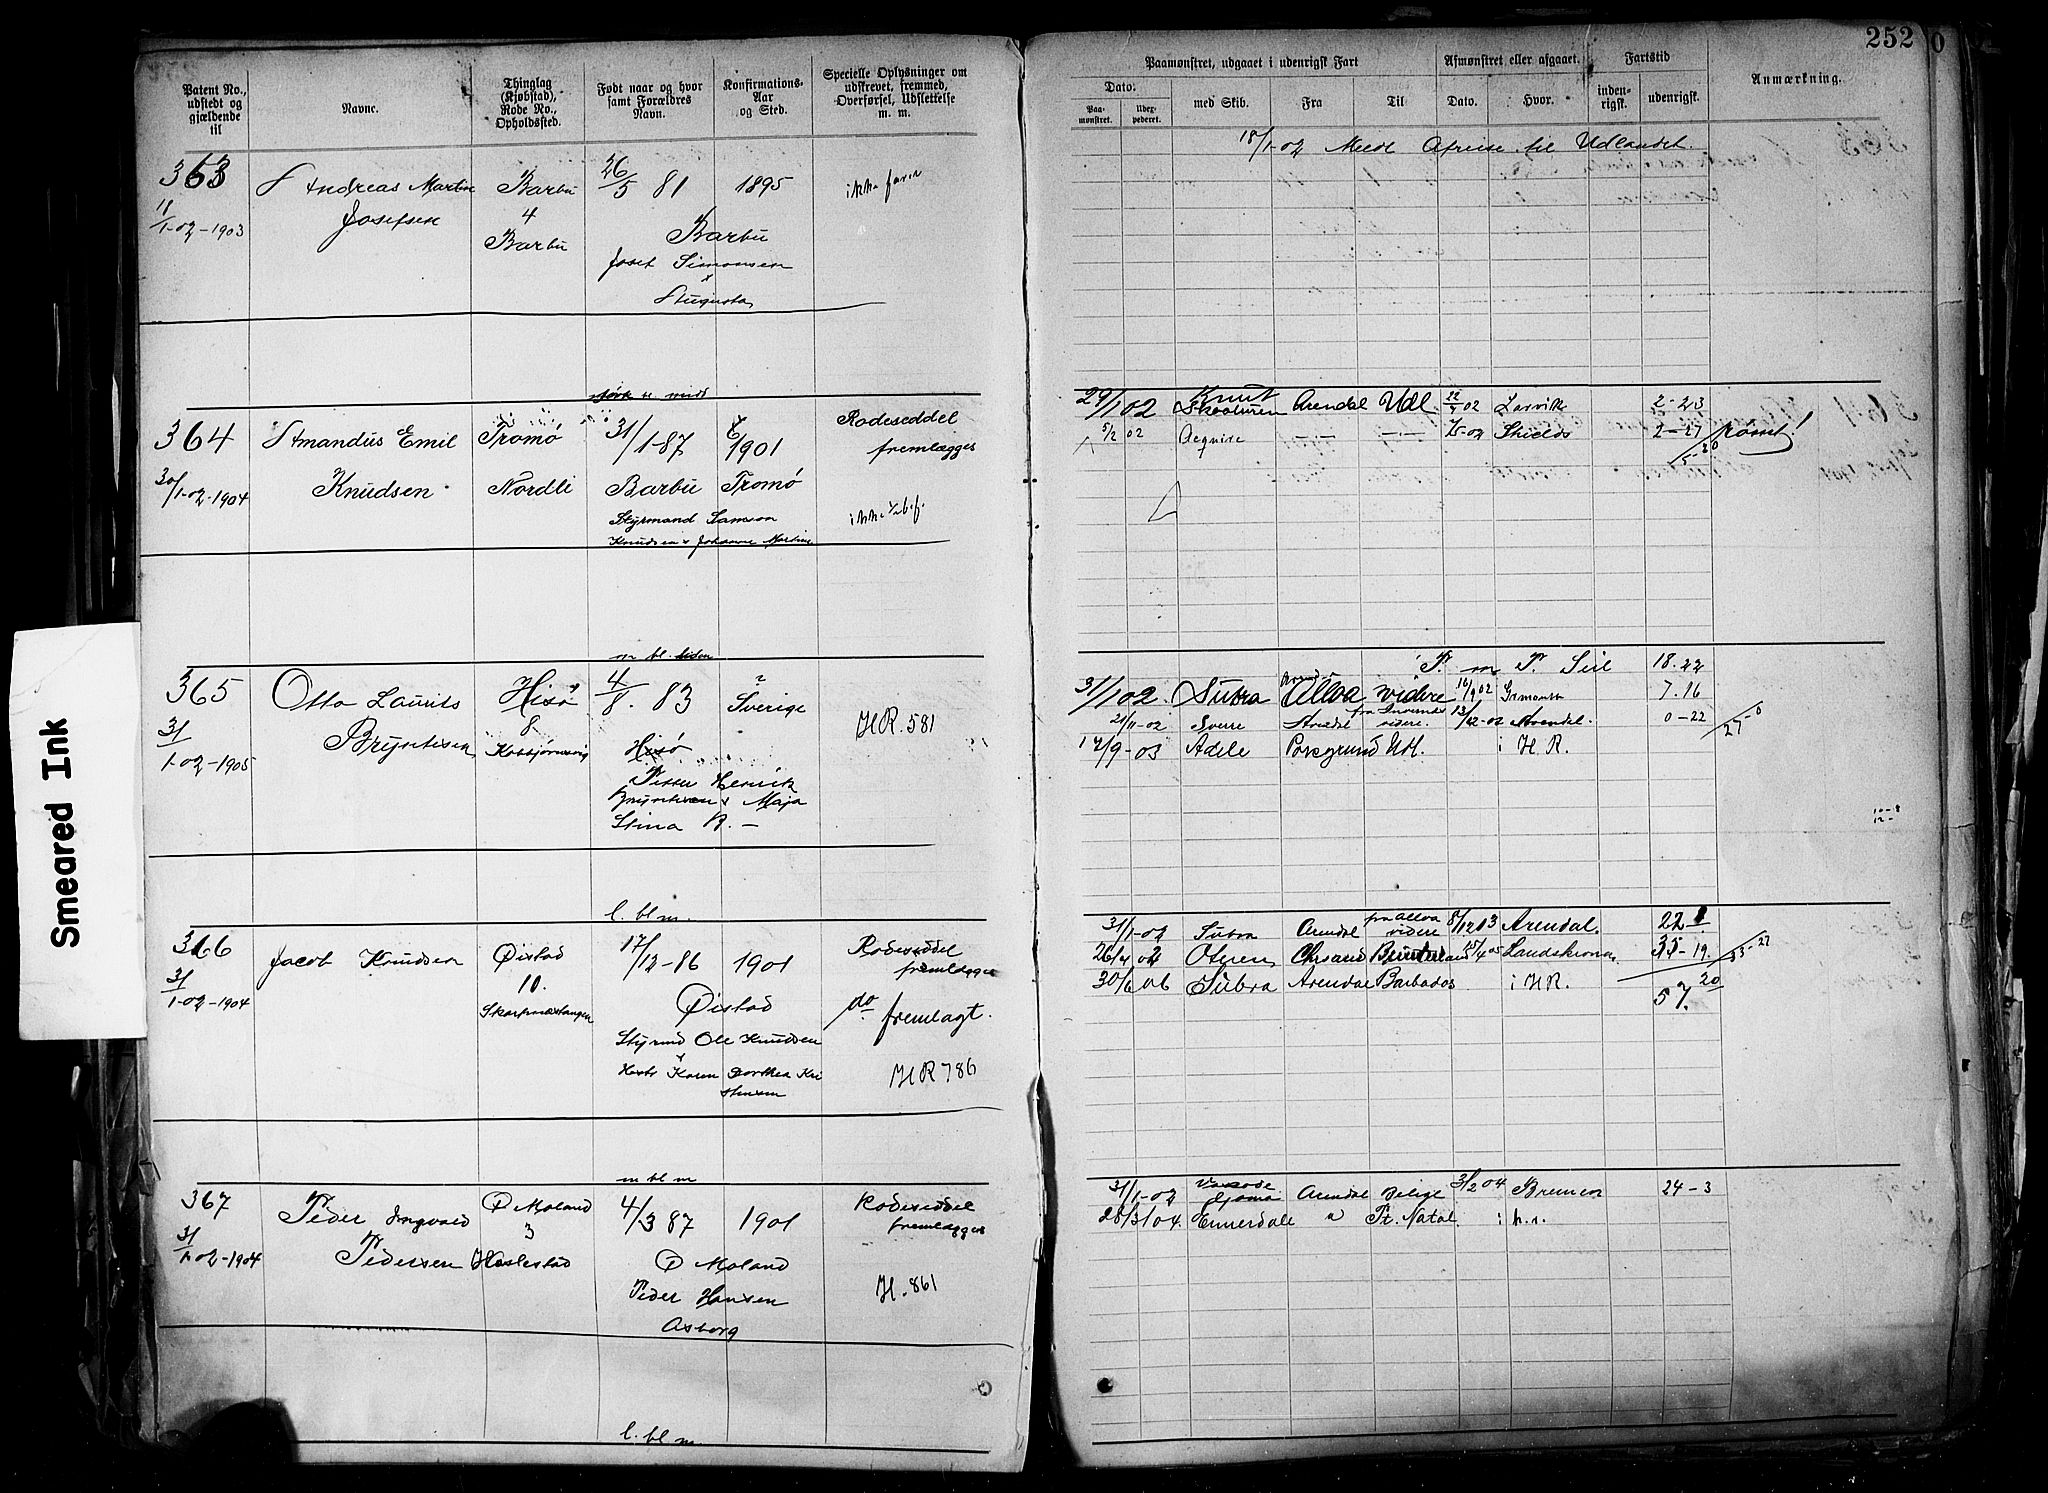 252
0
Smeared Ink
Patent No., udstedt og gjældende til
Navne.
Thinglag (Kjøbstad), Rode No., Opholdssted.
Født naar og hvor samt Forældres Navn.
Konfirmations-Aar og Sted.
Specielle Oplysninger om udskrevet, fremmed, Overførsel, Udslettelse m. m.
Paamønstret, udgaaet i udenrigsk Fart
Dato.
Paa-mønstret.
Udex-pederet.
med Skib.
Fra
Til
Afmønstret eller afgaaet.
Dato.
Hvor.
Fartstid
inden-rigsk.
udenrigsk.
Anmærkning.
363
11/1-02-1903
Andreas Martin
Josefsen
Barbu
4
Barbu
26/5 81
Barbu
Josef Simonsen
Augusta
1895
18/1-02 Meldt Afreise til Udlandet.
364
30/1-02-1904
Amandus Emil
Knudsen
Tromø
Nordli
31/1-87
Barbu
Styrmand Samson
Knudsen & Johanne Martine
1901
Tromø
Rodeseddel
fremlægges
29/1 02 Knut Skaaluren Arendal Udl 02 Larvik 2-23
5/2 02 Shields 2-27
5-20
m bl.
365
31/1-02-1905
Otto Laurits
Bryntesen
Hisø
8
Kolbjørnsvig
4/8. 83
Hisø
Petter Henrik
Bryntesen & Maja
Stina
?
Sverige
HR. 581
18.22
31/1 02. Subra Alloa videre 16/9 02 7.16
21/11-02 Sverre Arendal videre. 13/12-02 Arendal. 0-22
27-0
12/9-03 Adele Porsgrund Udl. i H R.
l. bl m.
366
31/1-02-1904
Jacob Knudsen
Øistad
10.
Skarpnæstangen
17/12-86
Øistad
Styrmd Ole Knudsen
Karen Dorthea Kristensen
1901
Rodeseddel
fremlægges
do fremlagt.
HR 786
31/1-02 Subra Arendal fra Alloa videre 8/12 03 Arendal. 22
26/4 04 Oteren Chrsand 05 Landskrona 35-19.
30/6 06 Subra Arendal Barbados i H R.
57. 20
m bl m
367
31/1-02-1904
Peder Ingvald
Pedersen
Ø Moland
3
Haslestad
4/3 87
Ø Moland
Peder Hansen
Asborg
1901
Rodeseddel
fremlægges
H. 861
31/1-02 Arendal 3/2 04 Bremen 24-3
28/3 04. Ennerdale Pt. Natal. i h.r.
l. bl m.